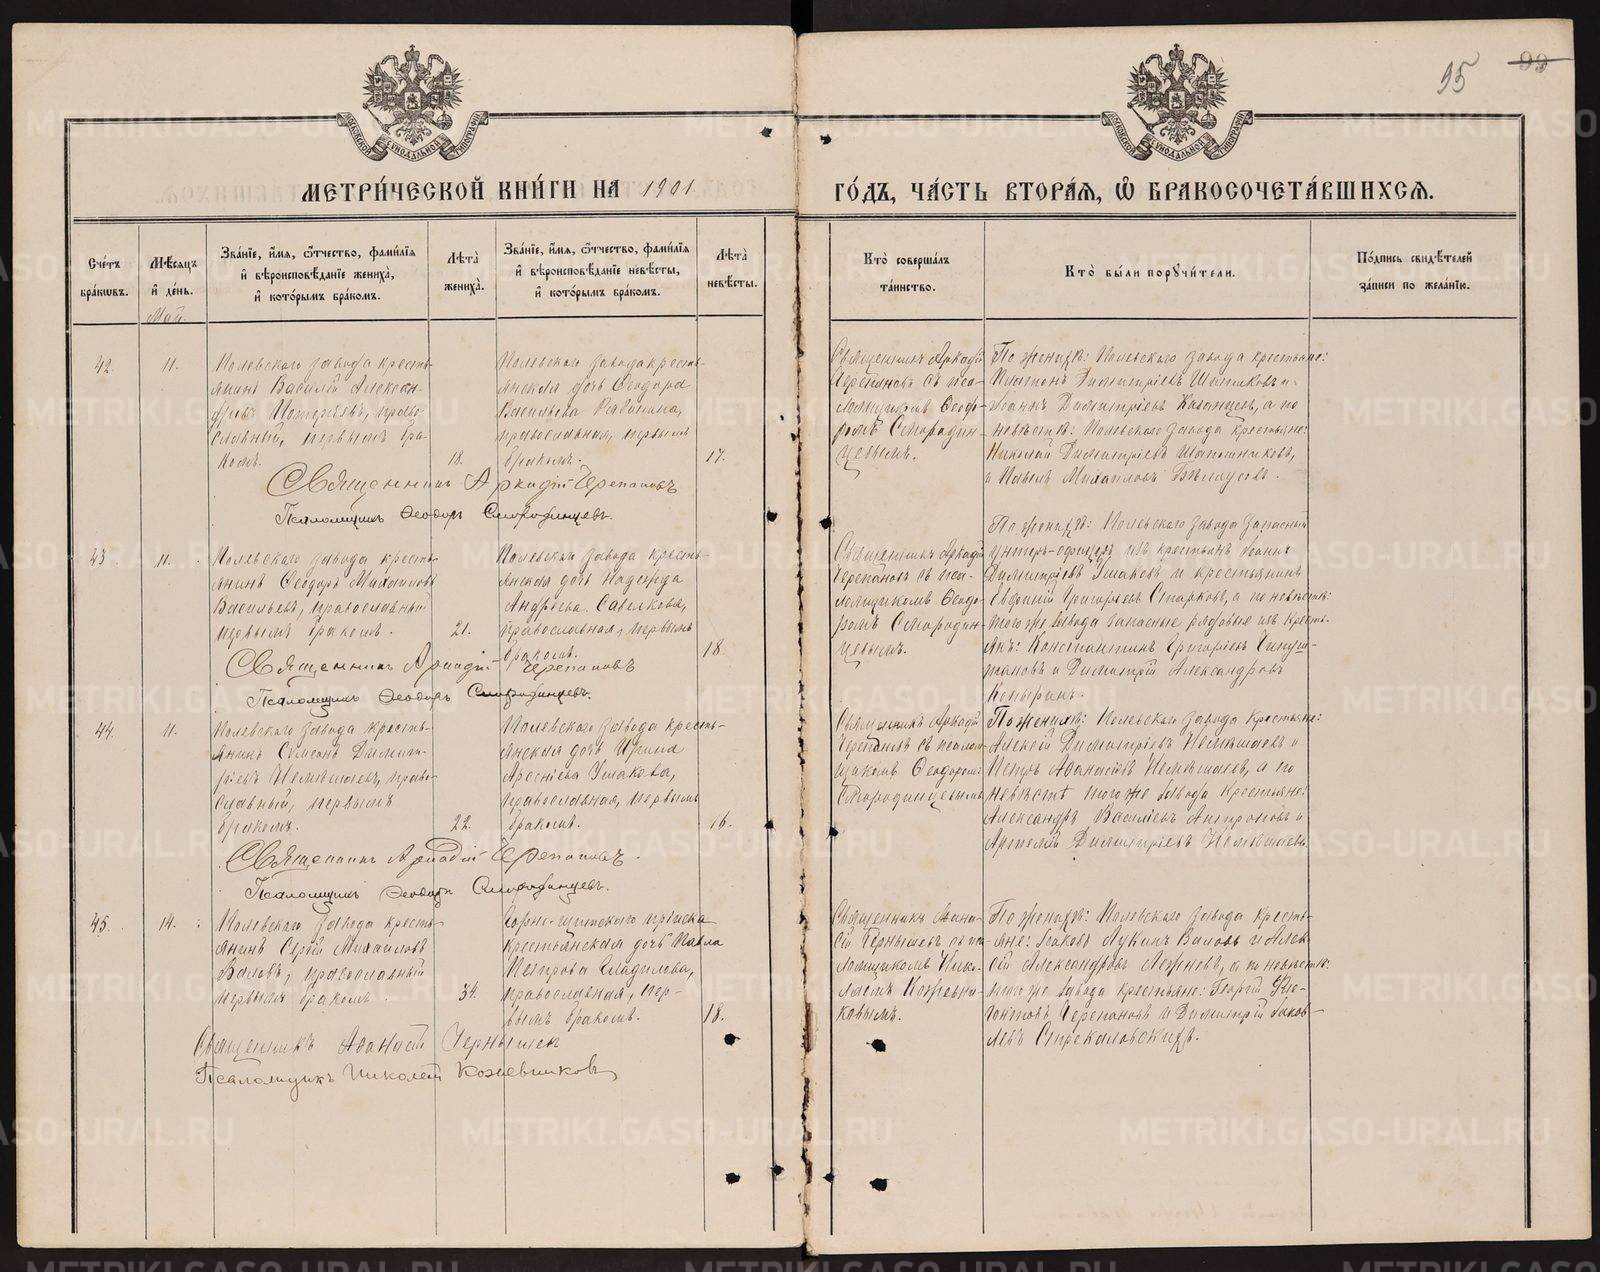 95
МОСКОВСКОЙ СѴНОДАЛЬНОЙ ТИПОГРАФІИ
МОСКОВСКОЙ СѴНОДАЛЬНОЙ ТИПОГРАФІИ
МЕТРИ́ЧЕСКОЙ КНИ́ГИ НА 1901 ГО́ДЪ, ЧА́СТЬ ВТОРА́Я, Ѽ БРАКОСОЧЕТА́ВШИХСЯ.
Сче́тъ бра́кωвъ.
Мѣ́сяцъ и҆ де́нь.
Зва́нїе, и҆́мя, ѻ҆́тчество, фами́лїя и҆ вѣроисповѣ́данїе жениха̀, и҆ кото́рымъ бра́комъ.
Лѣ́та жениха̀.
Зва́нїе, и҆́мя, ѻ҆́тчество, фами́лїя и҆ вѣроисповѣ́данїе невѣ́сты, и҆ кото́рымъ бра́комъ.
Лѣ́та невѣ́сты.
Кто̀ соверша́лъ та́инство.
Кто̀ бы́ли порꙋчи́тели.
По́дпись свидѣ́телей за́писи по жела́нїю.
Май.
42.
11.
Полевскаго завода кресть-
янинъ Василій Алексан-
дровъ
православный, первымъ бра-
комъ.
18.
Полевскаго завода кресть-
янская дочь Ѳеодора
Васильева
православная, первымъ
бракомъ.
17.
Священникъ Аркадій
Черепановъ съ пса-
ломщикомъ Ѳеодо-
ромъ Смородин-
цевымъ.
По женихѣ: Полевскаго завода крестьяне:
Платонъ Димитріевъ и
Іоаннъ Димитріевъ Казанцевъ, а по
невѣстѣ: Полевскаго завода крестьяне:
Николай Димитріевъ Шапошниковъ,
и Павелъ Михаиловъ
Священникъ Аркадій Черепановъ
Псаломщикъ Ѳеодоръ Смородинцевъ.
43.
11.
Полевскаго завода кресть-
янинъ Ѳеодоръ Михаиловъ
Васильевъ, православный
первымъ бракомъ.
21.
Полевскаго завода кресть-
янская дочь Надежда
Андреева Савелкова,
православная, первымъ
бракомъ.
18.
Священникъ Аркадій
Черепановъ съ пса-
ломщикомъ Ѳеодо-
ромъ Смородин-
цевымъ.
По женихѣ: Полевскаго завода запасный
унтеръ-офицеръ изъ крестьянъ Іоаннъ
Димитріевъ Ушаковъ и крестьянинъ
Евфимій Григорьевъ Старковъ, а по невѣстѣ:
того же завода запасные рядовые изъ кресть-
янъ: Константинъ Григорьевъ
и Димитрій Александровъ
Копыринъ.
Священникъ Аркадій Черепановъ
Псаломщикъ Ѳеодоръ Смородинцевъ.
44.
11.
Полевскаго завода кресть-
янинъ Симеонъ Димит-
ріевъ Немѣшаевъ, право-
славный, первымъ
бракомъ.
22.
Полевскаго завода кресть-
янская дочь Ирина
Арсеніева Ушакова,
православная, первымъ
бракомъ.
16.
Священникъ Аркадій
Черепановъ съ псалом-
щикомъ Ѳеодоромъ
Смородинцевымъ
По женихѣ: Полевскаго завода крестьяне:
Алексій Димитріевъ Немѣшаевъ и
Петръ Аѳанасіевъ Немѣшаевъ, а по
невѣстѣ того же завода крестьяне:
Александръ Василіевъ Антроповъ и
Артемій Димитріевъ Немѣшаевъ
Священникъ Аркадій Черепановъ.
Псаломщикъ Ѳеодоръ Смородинцевъ.
45.
14.
Полевскаго завода кресть-
янинъ Сергій Михаиловъ
Валовъ, православный
первымъ бракомъ.
34.
Горно-Щитскаго пріиска
крестьянская дочь Павла
Петрова Гладилова,
православная, пер-
вымъ бракомъ.
18.
Священникъ Аѳана-
сій Чернышевъ съ пса-
ломщикомъ Нико-
лаемъ Кожевни-
ковымъ.
По женихѣ: Полевскаго завода кресть-
яне: Іаковъ Лукинъ Валовъ и Алек-
сій Александровъ а по невѣстѣ:
того же завода крестьяне: Георгій
Черепановъ и Димитрій Іаков-
левъ
Священникъ Аѳанасій Чернышевъ
Псаломщикъ Николай Кожевниковъ
METRIKI.GASO-URAL.RU